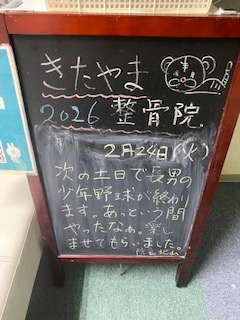 きたやま
2026 整骨院
2月24日(火)
次の土日で長男の
少年野球が終わり
ます。あっという間
やったなぁ。楽し
ませてもらいました。
院長北山